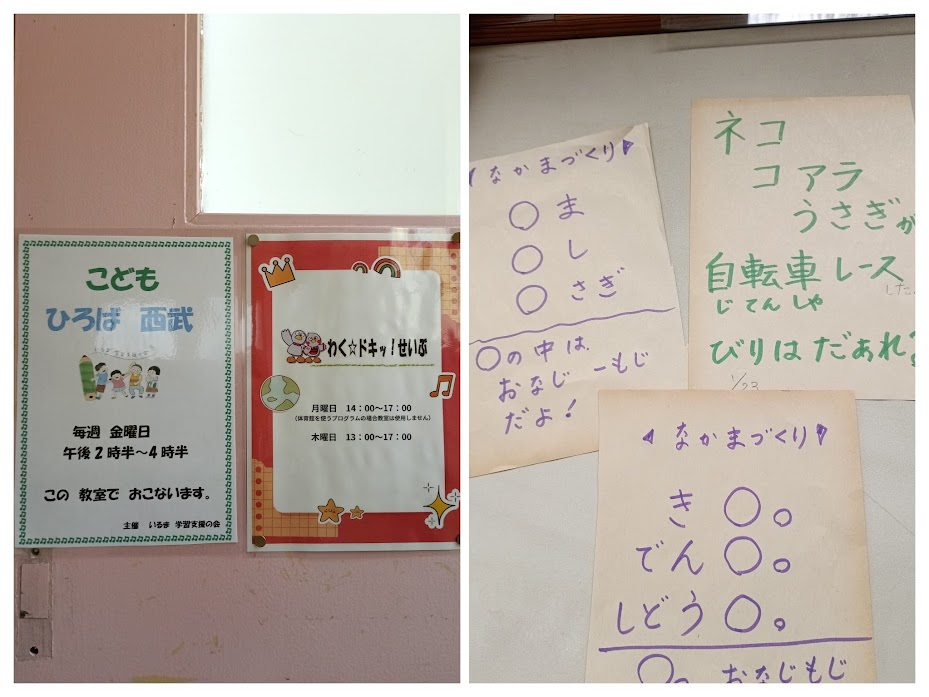 こども
ひろば 西武
毎週 金曜日
午後2時半～4時半
この 教室で おこないます。
主催 いるま 学習支援の会
わく☆ドキッ!せいぶ
月曜日 14:00～17:00
(体育館を使うプログラムの場合教室は使用しません)
木曜日 13:00～17:00
なかまづくり
○ま
○し
○さぎ
○の中は
おなじ 一もじ
だよ!
ネコ
コアラ
うさぎが
自転車レース
じてんしゃ
した
びりはだあれ?
1/23
なかまづくり
き○。
でん○。
しどう○。
○。おなじもじ